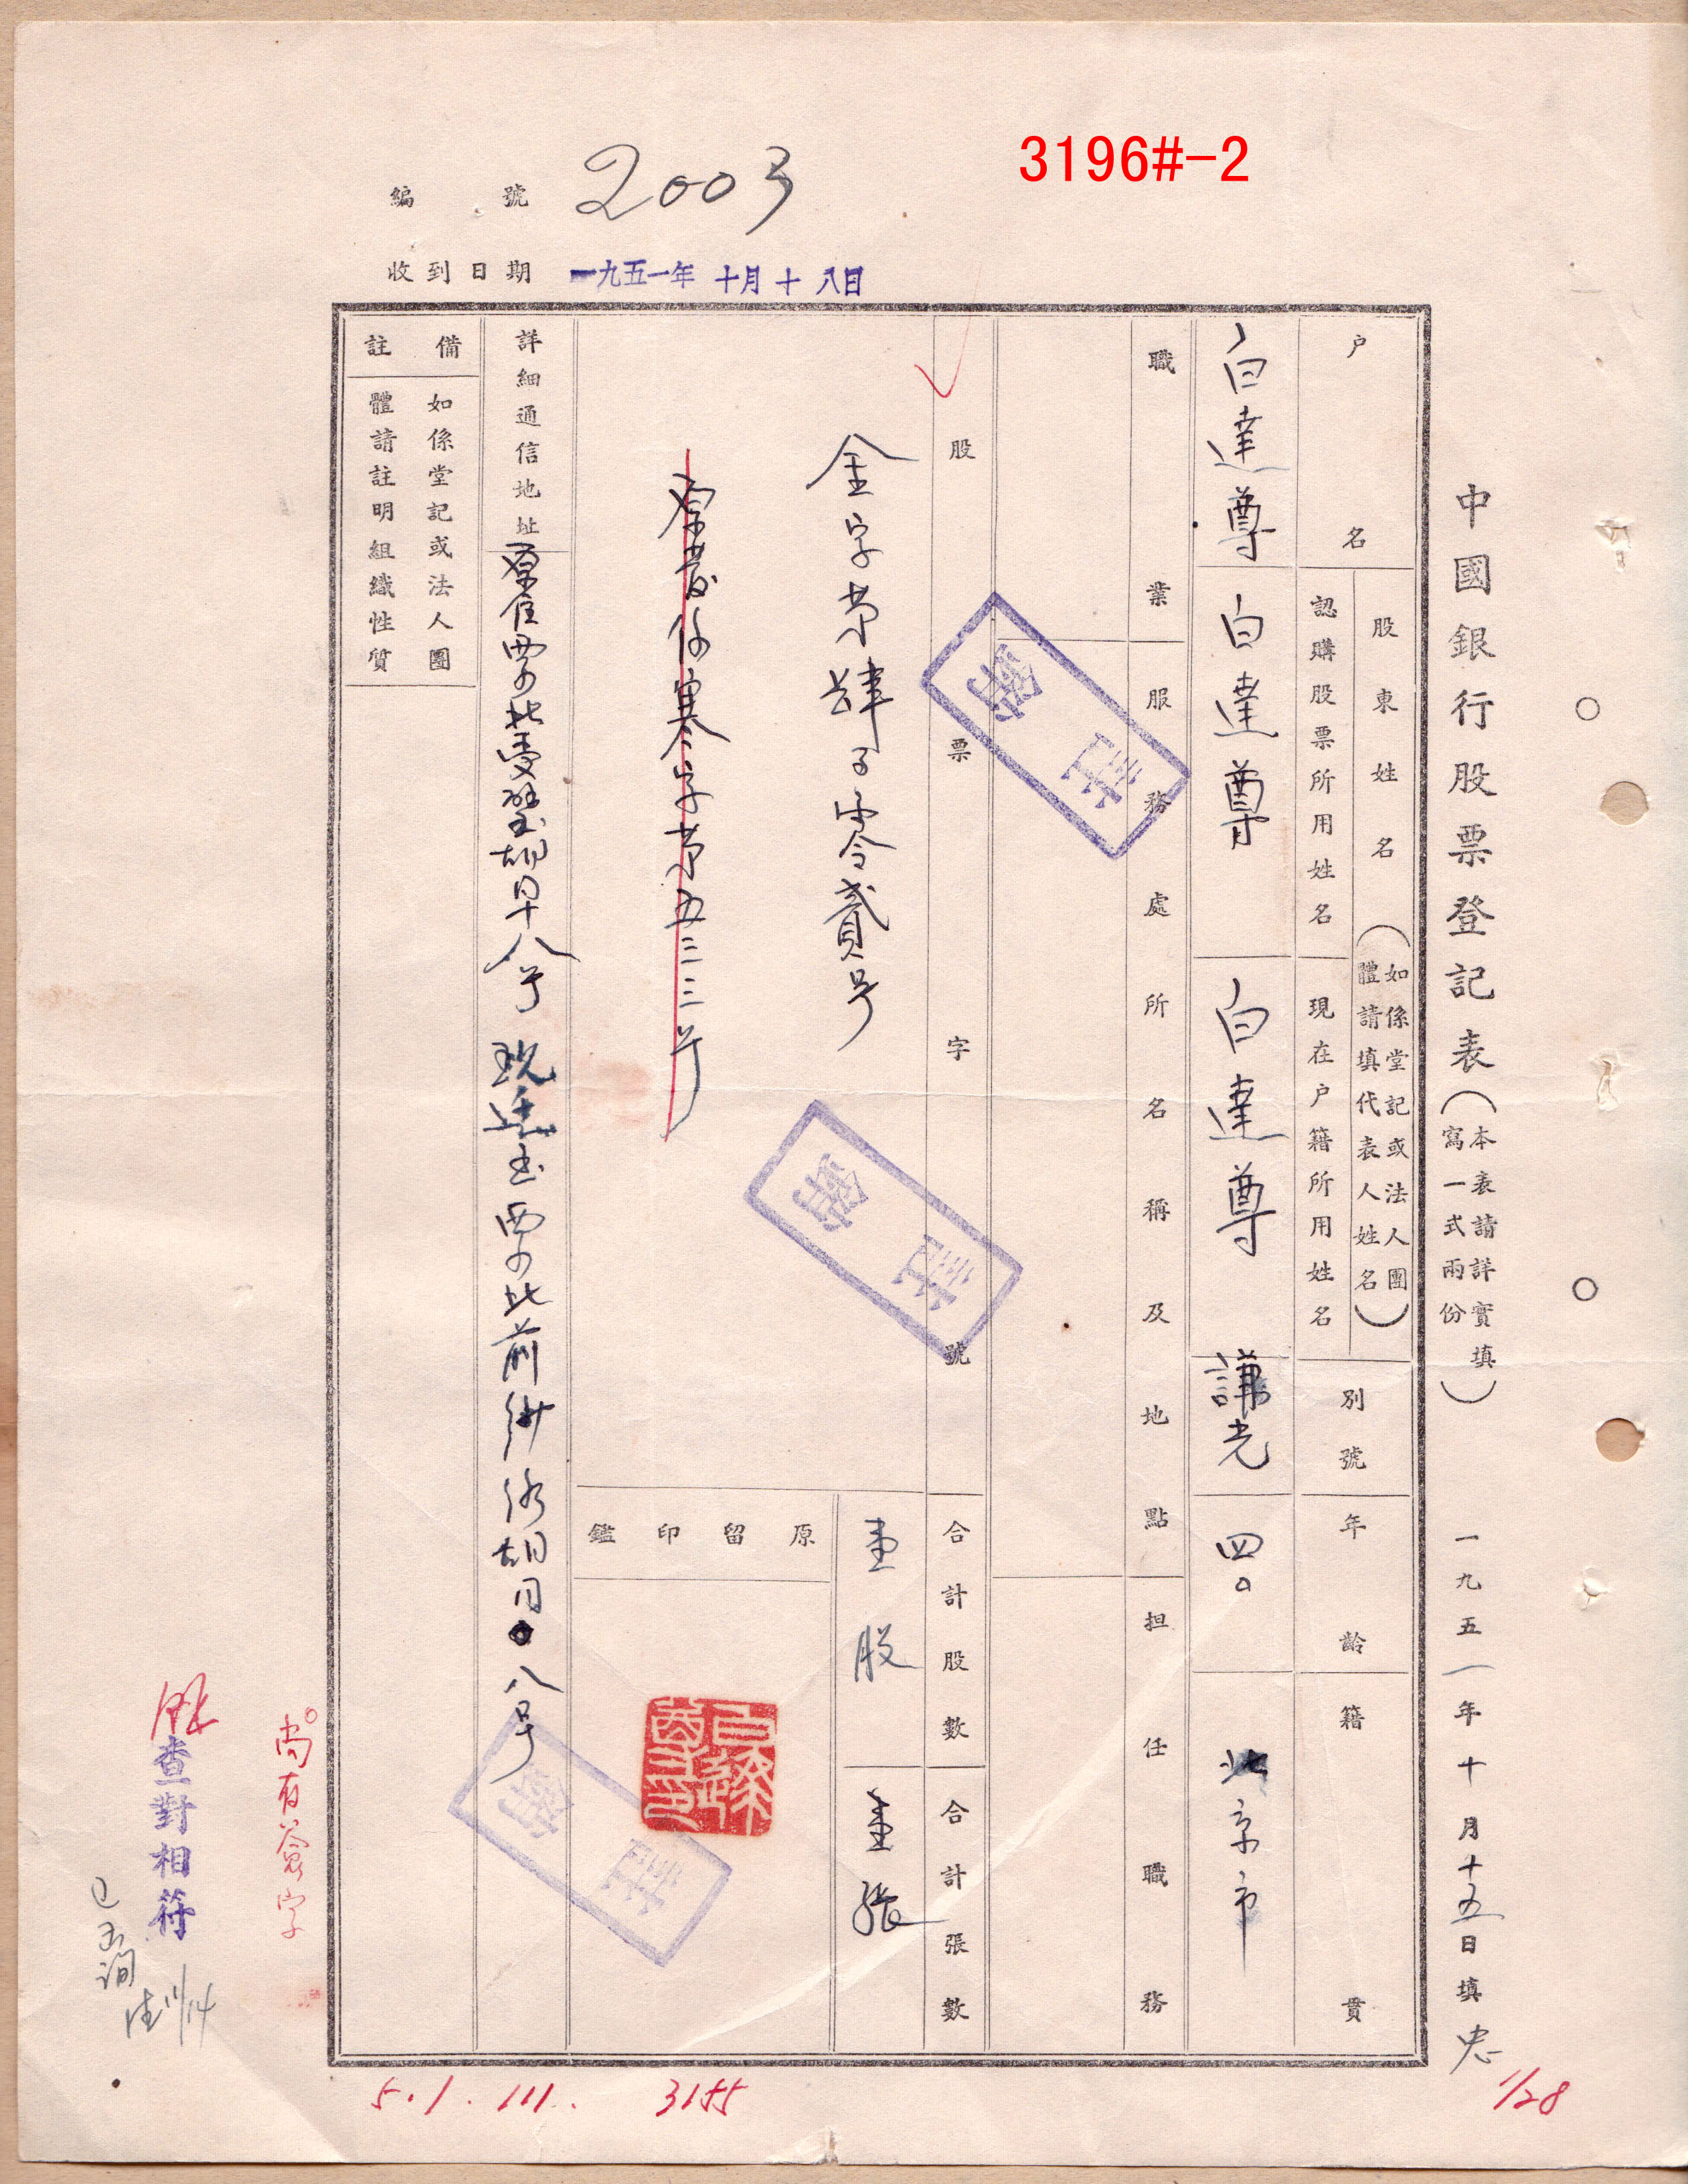 3196#-2
編號 2003
收到日期 一九五一年 十月十八日
中國銀行股票登記表(本表請詳實填寫一式兩份)
一九五一年十月十五日填
戶名
股東姓名(如係堂記或法人團體請填代表人姓名)
認購股票所用姓名
現在戶籍所用姓名
別號
年齡
籍貫
白達尊
白達尊
白達尊
謙光
四〇
北京市
職業
服務處所名稱及地點
担任職務
股票字號
合計股數
合計張數
金字第肆百零貳号
壹股
壹張
原留印鑑
註銷
註銷
註銷
詳細通信地址
備註
如係堂記或法人團體請註明組織性質
尚有簽字
查對相符
5.1.111. 3155
1/28